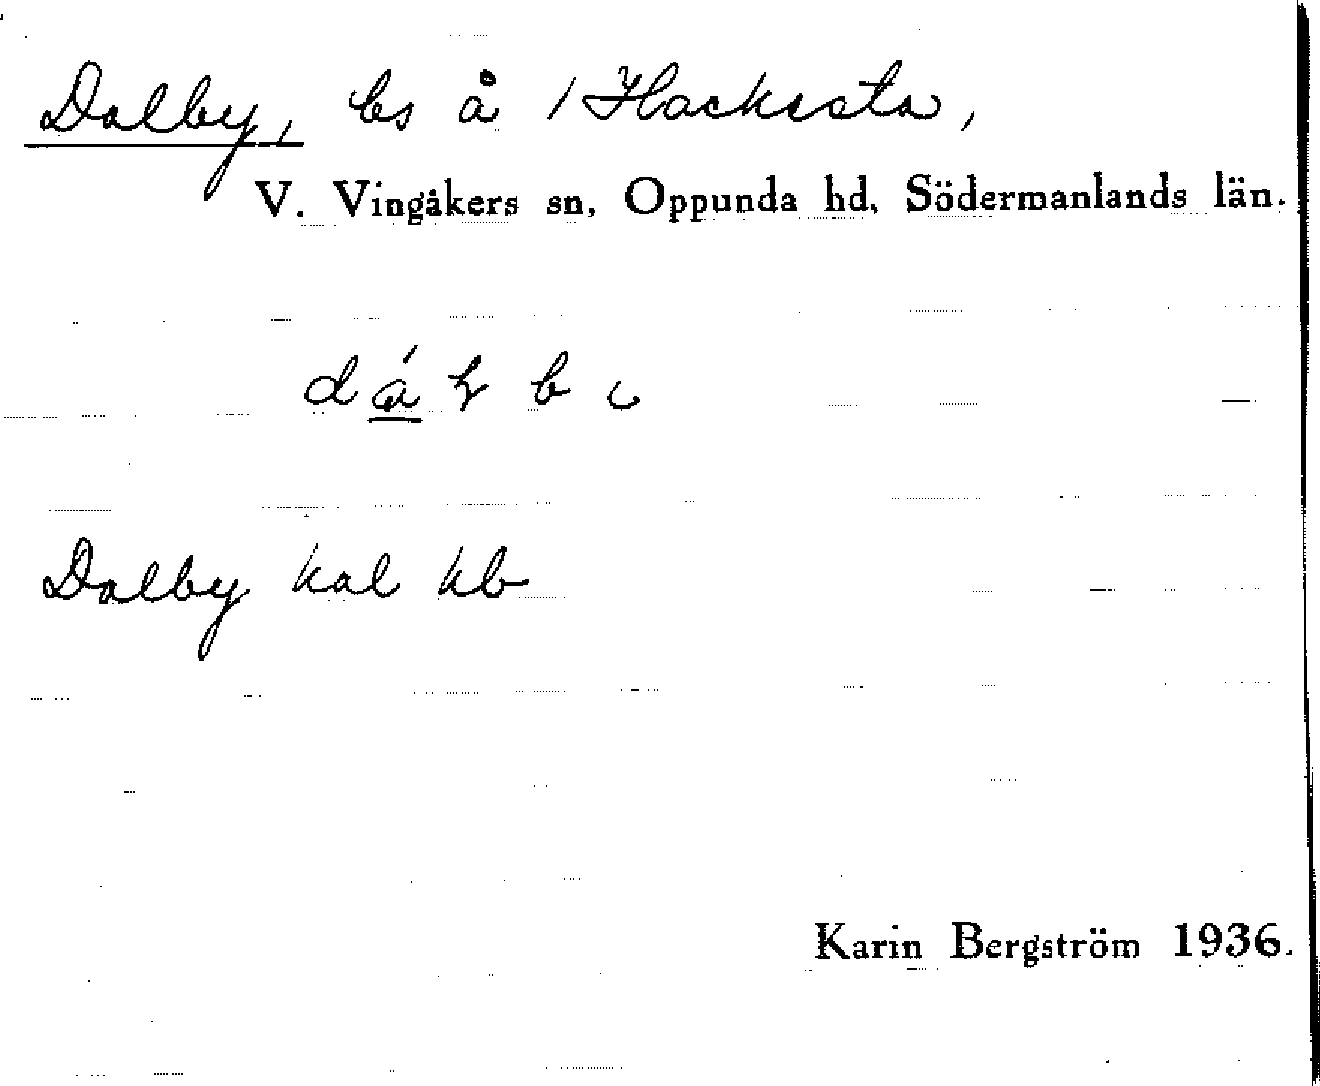 Dalby, ls å 1 Hacksta,
V. Vingåkers sn, Oppunda hd, Södermanlands län.
Dalby kal kb
Karin Bergström 1936.